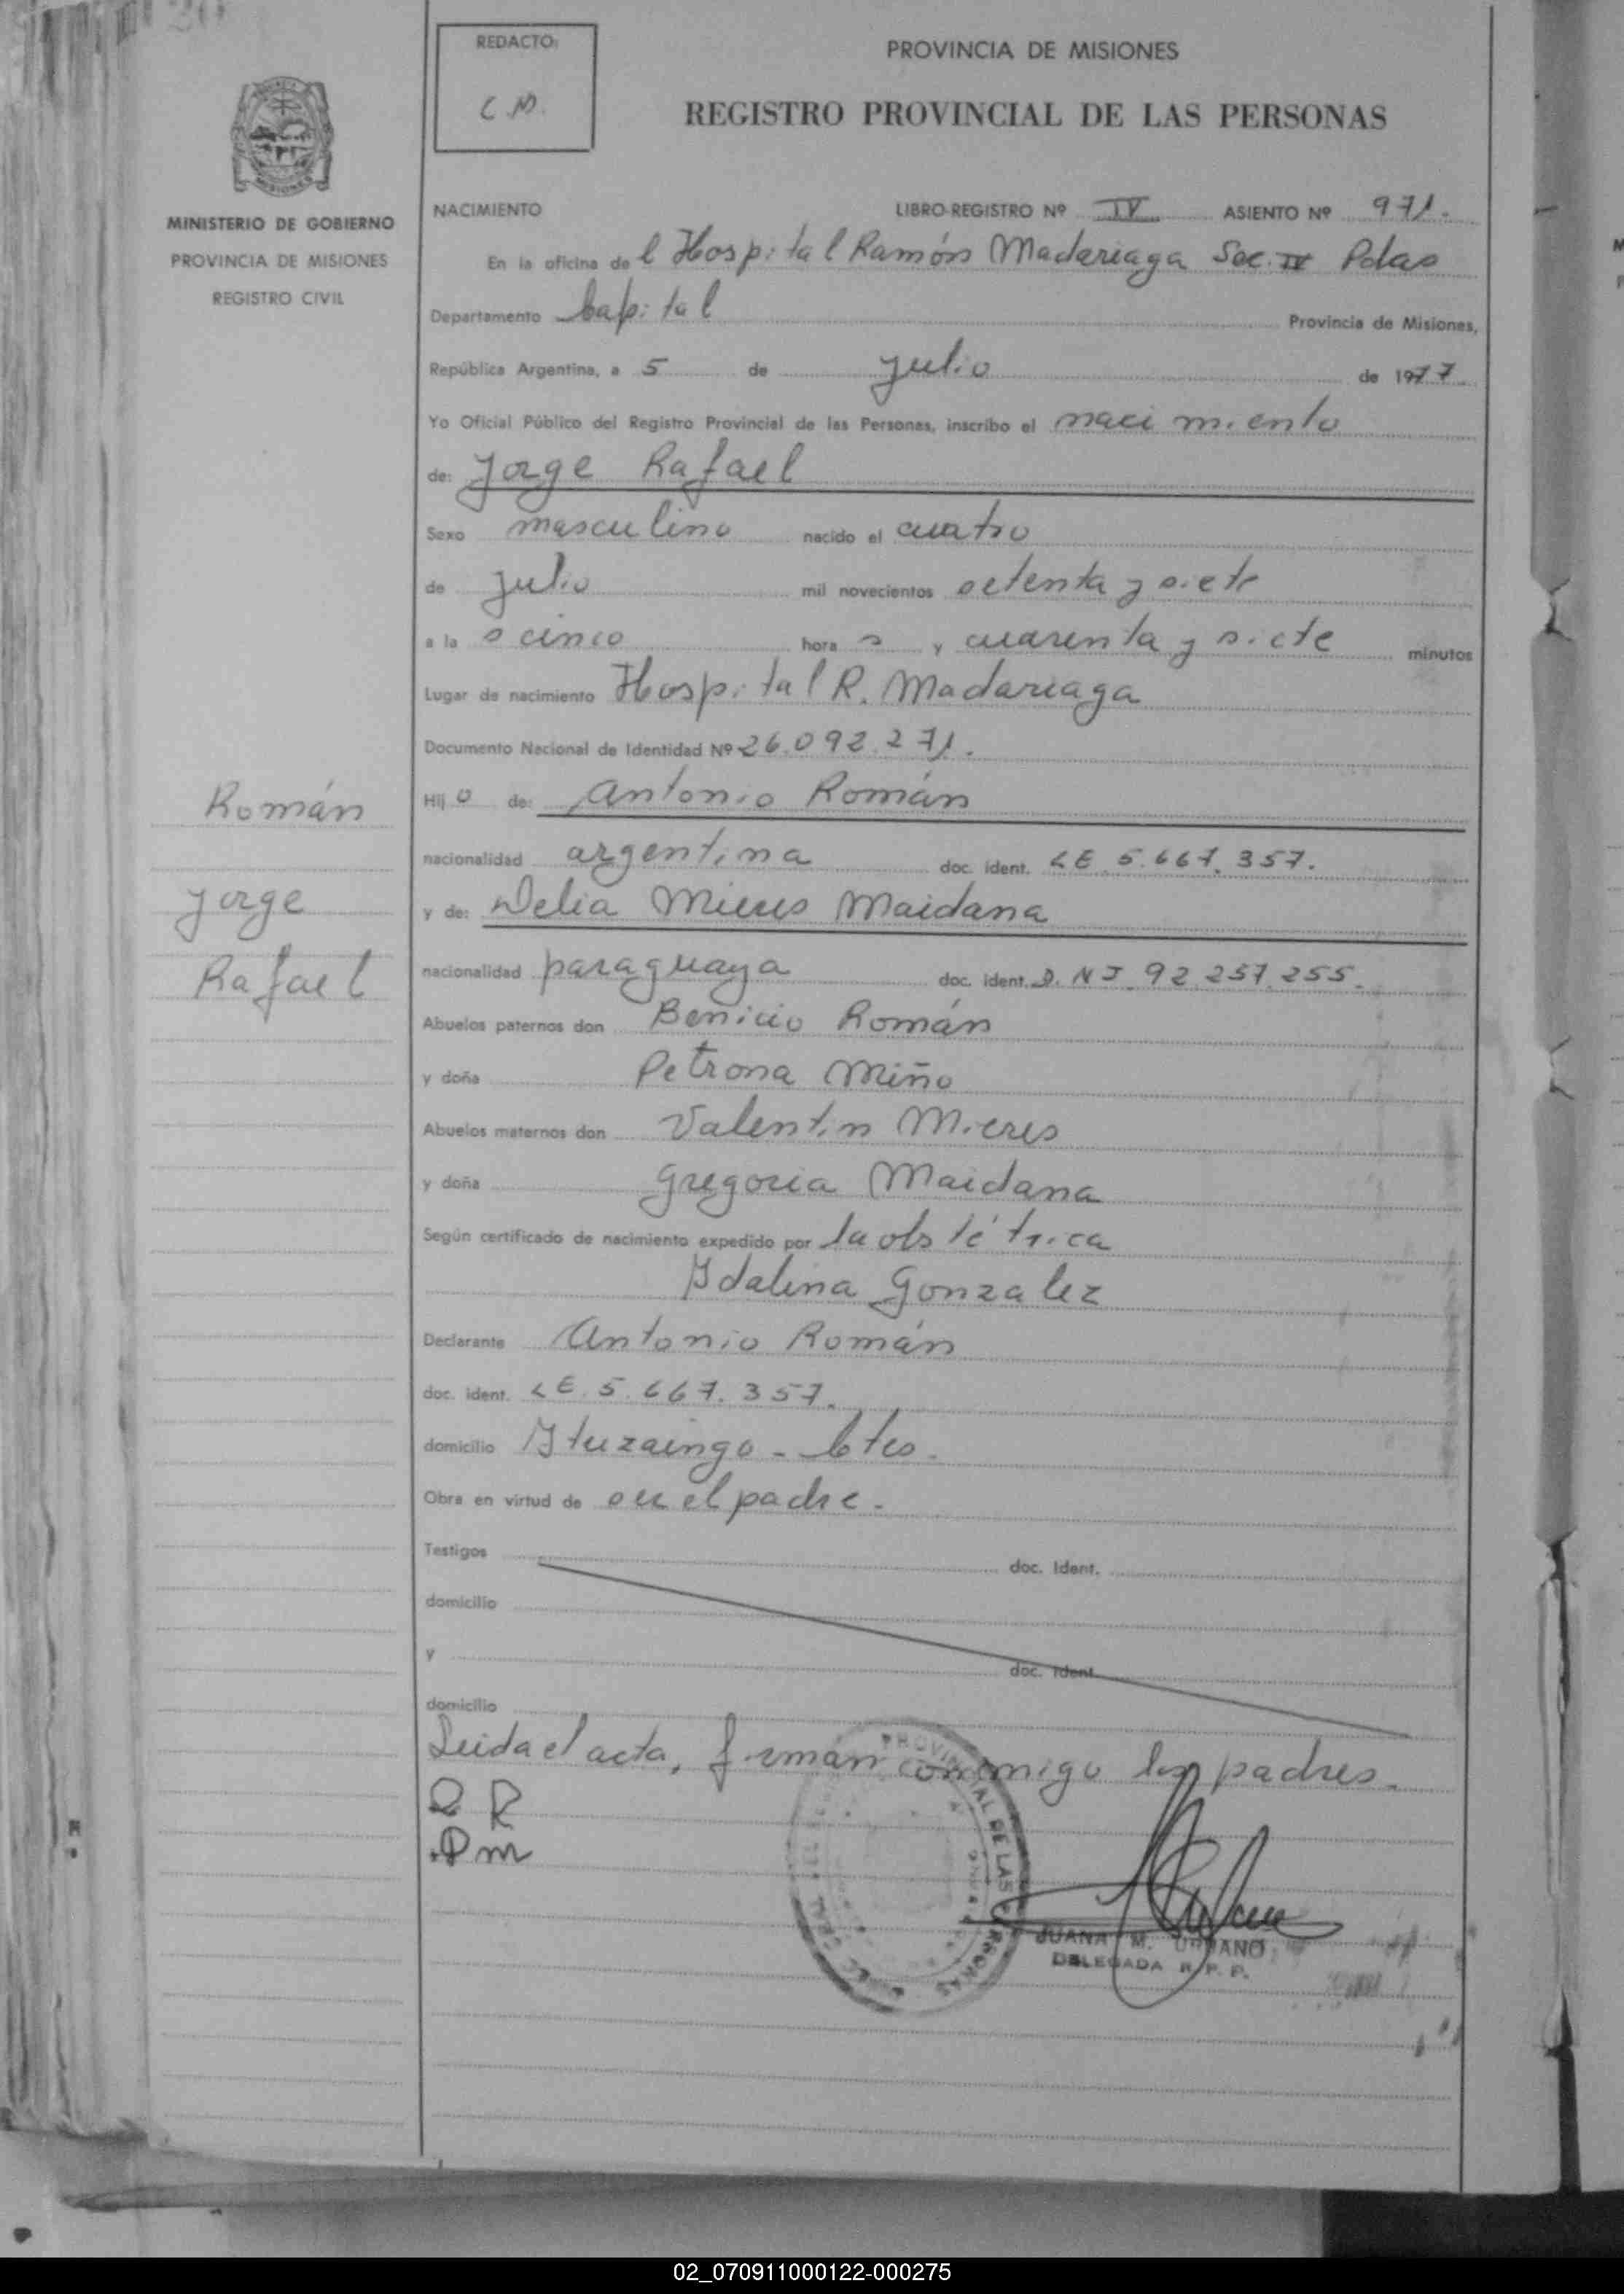 REDACTO:
C.M.
MINISTERIO DE GOBIERNO
PROVINCIA DE MISIONES
REGISTRO CIVIL
PROVINCIA DE MISIONES
REGISTRO PROVINCIAL DE LAS PERSONAS
NACIMIENTO LIBRO-REGISTRO Nº IV ASIENTO Nº 971.
En la oficina de l Hospital Ramón Madariaga Sec. IV Pdas
Departamento Capital Provincia de Misiones,
República Argentina, a 5 de julio de 1977.
Yo Oficial Público del Registro Provincial de las Personas, inscribo el nacimiento
de: Jorge Rafael
Sexo masculino nacido el cuatro
de julio mil novecientos setenta y siete
a la s cinco hora s y cuarenta y siete minutos
Lugar de nacimiento Hospital R. Madariaga
Documento Nacional de Identidad Nº 26.092.271.
Hij o de: Antonio Román
nacionalidad argentina doc. ident. LE 5.667.357.
y de: Delia Mieres Maidana
nacionalidad paraguaya doc. ident. D.NI. 92.257.255.
Abuelos paternos don Benicio Román
y doña Petrona Miño
Abuelos maternos don Valentin Mieres
y doña Gregoria Maidana
Según certificado de nacimiento expedido por la obstétrica
Idalina Gonzalez
Declarante Antonio Román
doc. ident. LE. 5.667.357.
domicilio Ituzaingo - Ctes.
Obra en virtud de ser el padre.
Testigos doc. Ident.
domicilio
y doc. Ident.
domicilio
Leida el acta, firman conmigo los padres.
R
Dm
JUANA M. URBANO
DELEGADA R. P. P.
PROVINCIAL DE LAS PERSONAS
Román
Jorge
Rafael
MISIONES
02_070911000122-000275